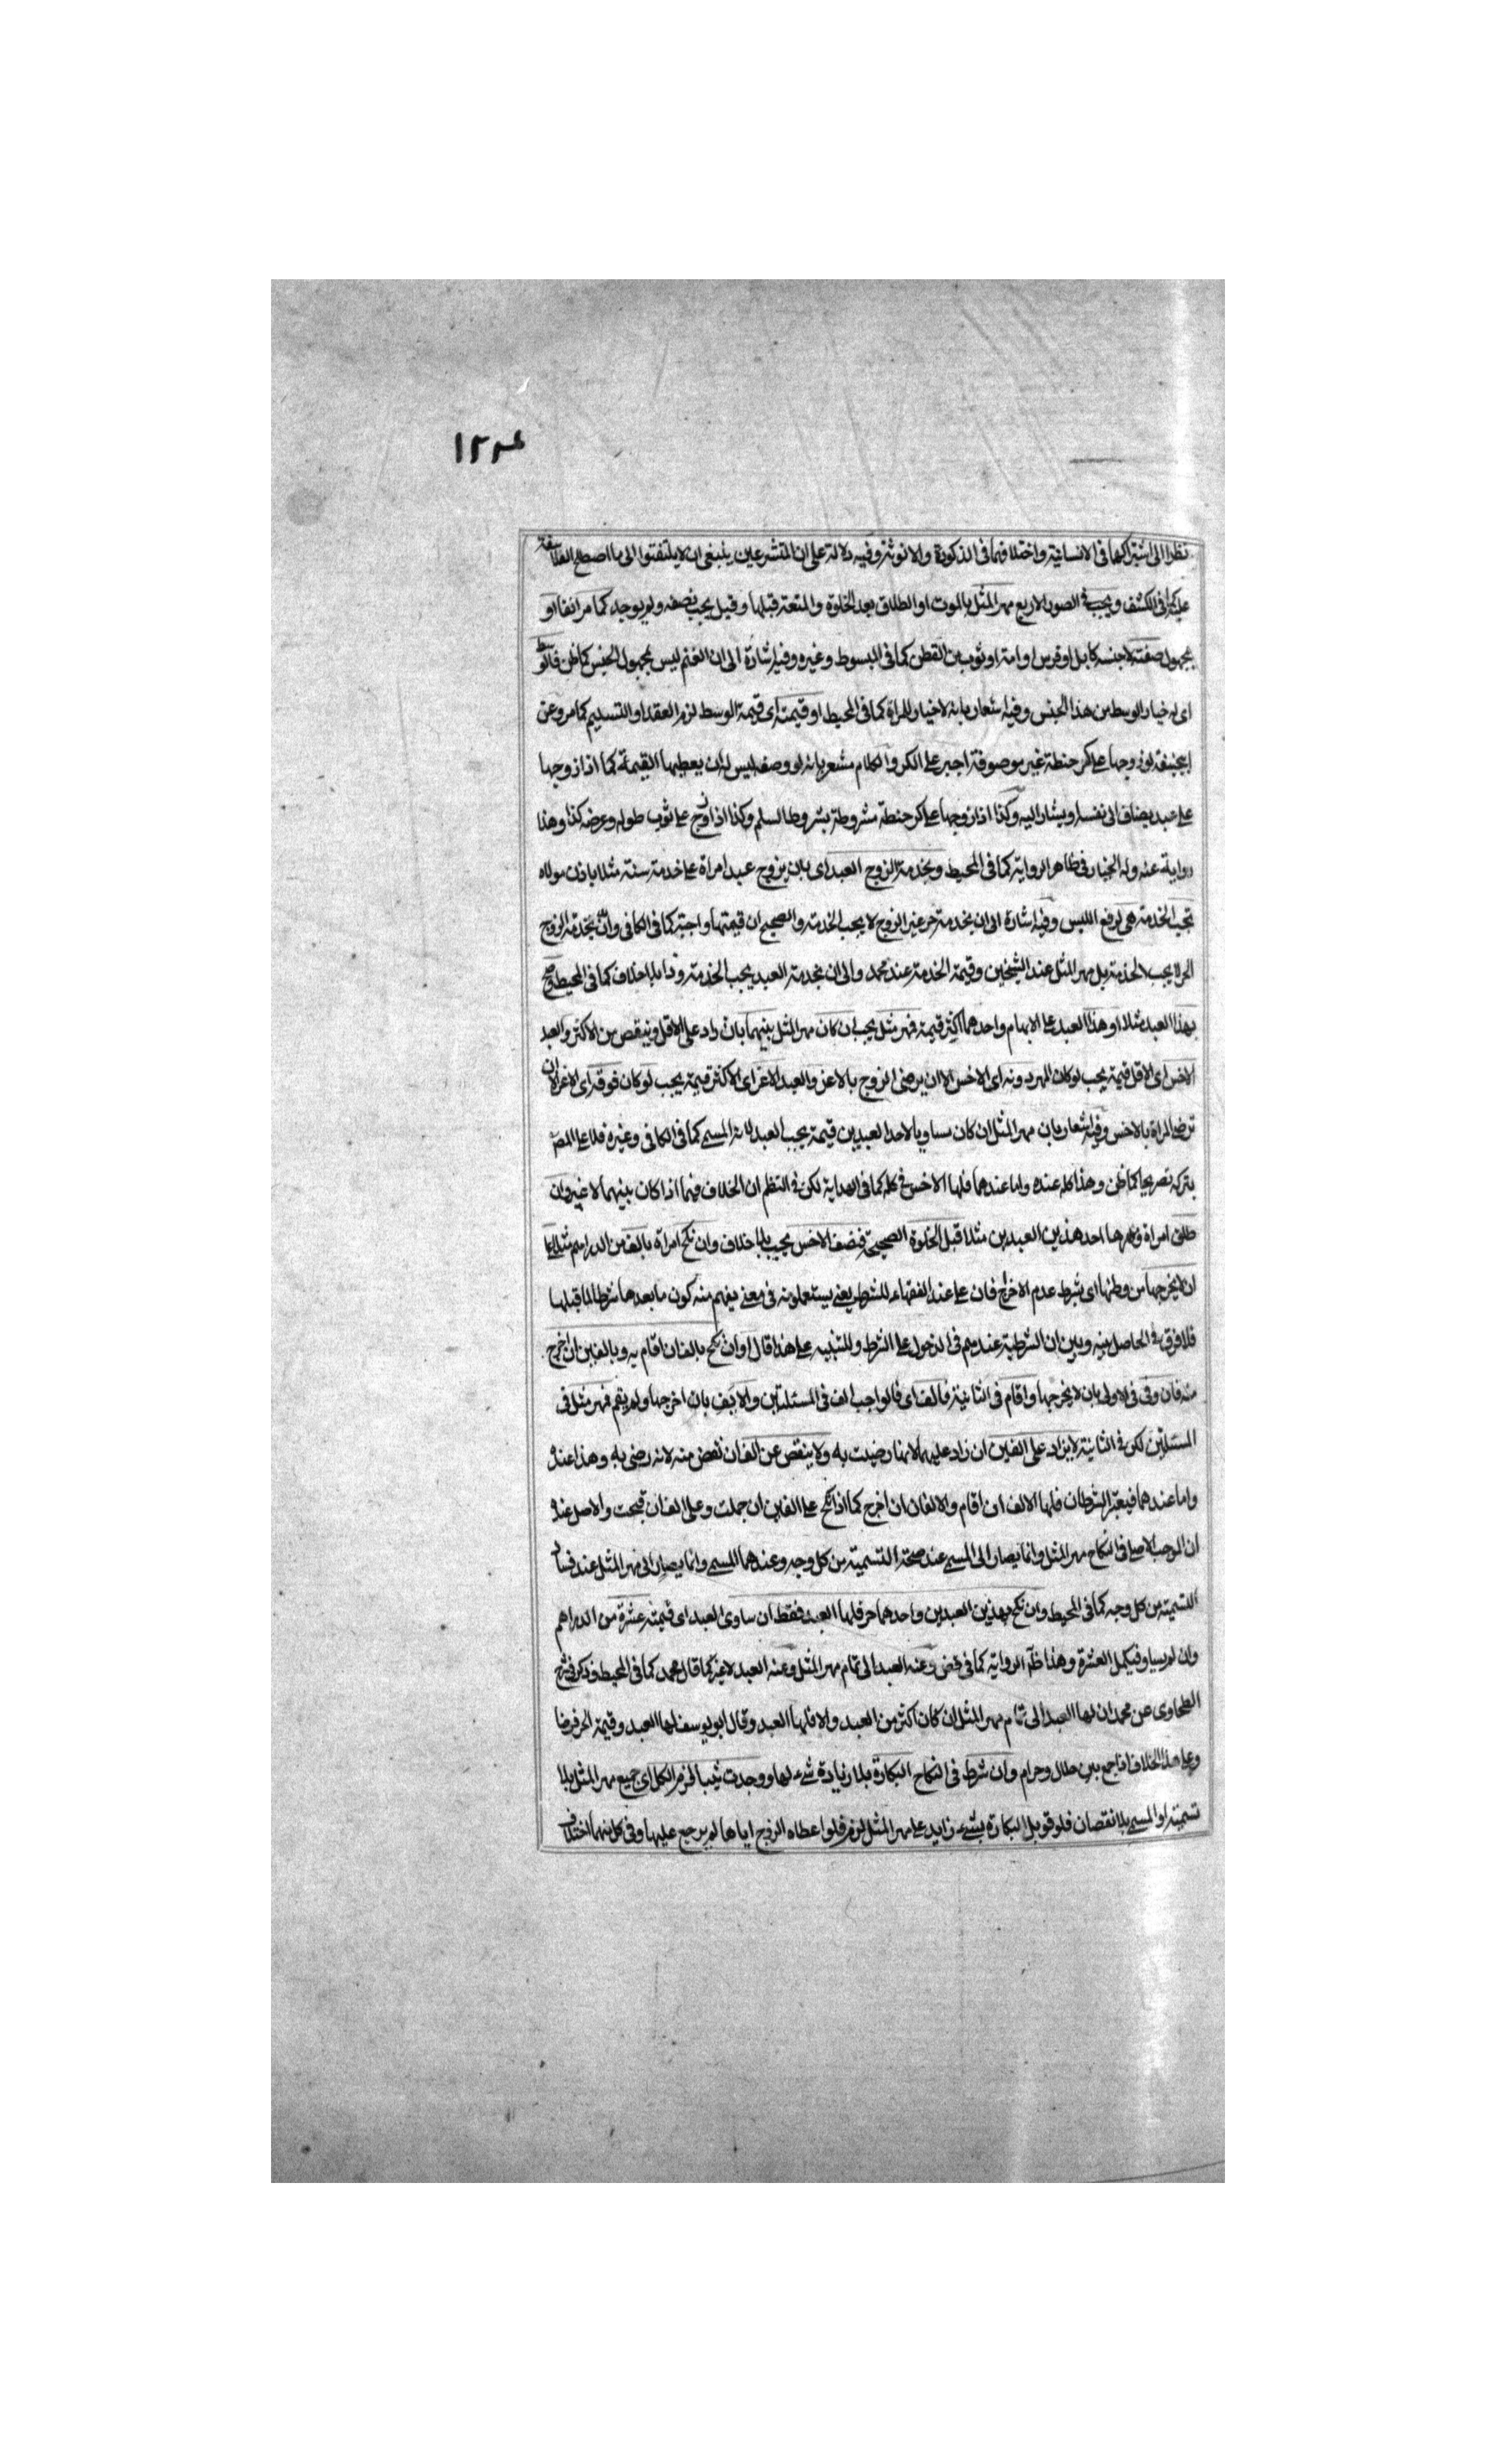 ١٢٢٤
نظرا الى اشتراكهما فى الانسانية واختلافهما فى الذكورة والانوثة وفيه دلالة على ان المتشرعين ينبغى ان لا يلتفتوا الى ما اصطلح الفلاسفة
عليه كما فى الكشف ويجب فى الصور الاربع مهر المثل بالموت او الطلاق بعد الخلوة والمتعة قبلها وقيل يجب نصفه ولم يوجد كما مر انفا او
مجهول صفته لا جنسه كابل او فرس او امة او ثوب من القطن كما فى المبسوط وغيره وفيه اشارة الى ان الغنم ليس مجهول الجنس كما ظن فالوسط
اى له خيار الوسط من هذا الجنس وفيه اشعار بانه لا خيار للمراة كما فى المحيط او قيمته اى قيمة الوسط لزم العقد او التسليم كما مر وعن
ابيحنيفة لو زوجها على كر حنطة غير موصوفة اجبر على الكر والكلام مشعر بانه لو وصفه ليس له ان يعطيها القيمة كما اذا زوجها
على عبد يضاف الى نفسه او يشار اليه وكذا اذا زوجها على كر حنطة مشروطة بشروط السلم وكذا اذا زوج على ثوب طوله وعرضه كذا وهذا
رواية عنه وله الخيار فى ظاهر الرواية كما فى المحيط وبخدمة الزوج العبد اى بان يزوج عبد امراة على خدمة سنة مثلا باذن مولاه
تجب الخدمة هى لرفع اللبس وفيه اشارة الى ان بخدمة حر غير الزوج لا يجب الخدمة والصحيح ان قيمتها واجبة كما فى الكافى وان بخدمة الزوج
الحر لا يجب الخدمة بل مهر المثل عند الشيخين وقيمة الخدمة عند محمد والى ان بخدمة العبد يجب الخدمة وذا بلا خلاف كما فى المحيط وصح
بهذا العبد مثلا او هذا العبد على الابهام واحدهما اكثر قيمة فمهر مثل يجب ان كان مهر المثل بينهما بان زاد على الاقل وينقص من الاكثر والعبد
الاخس اى الاقل قيمة يجب لو كان المهر دونه اى الاخس الا ان يرضى الزوج بالاعز والعبد الاعز اى الاكثر قيمة يجب لو كان فوقه اى الاعز الا ان
ترضى المراة بالاخس وفيه اشعار بان مهر المثل ان كان مساويا لاحد العبدين قيمة يجب العبد لانه المسمى كما فى الكافى وغيره فلا على المص
بتركه تصريحا كما ظن وهذا كله عنده واما عندهما فلها الاخس فى كله كما فى الهداية لكن فى النظم ان الخلاف فيما اذا كان بينهما لا غير وان
طلق امراة ومهرها احد هذين العبدين مثلا قبل الخلوة الصحيحة فنصف الاخس يجب بلا خلاف وان نكح امراة بالف من الدراهم مثلا على
ان لا يخرجها من وطنها اى بشرط عدم الاخراج فان على عند الفقهاء للشرط يعنى يستعملونه فى معنى يفهم منه كون ما بعدها شرطا لما قبلها
فلا فرق فى الحاصل بينه وبين ان الشرطية عندهم فى الدخول على الشرط وللتنبيه على هذا قال او ان نكح بالف ان اقام به وبالفين ان اخرج
منه فان وفى فى الاولى بان لا يخرجها واقام فى الثانية فالف اى فالواجب الف فى المسئلتين والا يف بان اخرجها ولم يقم فمهر مثل فى
المسئلتين لكن فى الثانية لا يزاد على الفين ان زاد عليهما لانها رضيت به ولا ينقص عن الف ان نقص منه لانه رضى به وهذا عنده
واما عندهما فيعتبر الشرطان فلها الالف ان اقام والالفان ان اخرج كما اذا نكح على الفين ان جملت وعلى الف ان قبحت والاصل عنده
ان الموجب الاصلى فى النكاح مهر المثل وانما يصار الى المسمى عند صحة التسمية من كل وجه وعندهما المسمى وانما يصار الى مهر المثل عند فساد
التسمية من كل وجه كما فى المحيط وان نكح بهذين العبدين واحدهما حر فلها العبد فقط ان ساوى العبد اى قيمته عشرة من الدراهم
وان لم يساو فيكمل العشرة وهذا ظاهر الرواية كما فى وعنه العبد الى تمام مهر المثل وعنه العبد لا غير كما قال محمد كما فى المحيط وذكر فى شرح
الطحاوى عن محمد ان لها العبد الى تمام مهر المثل ان كان اكثر من العبد والا فلها العبد وقال ابو يوسف لها العبد وقيمة الحر فرضا
وعلى هذا الخلاف اذا جمع بين حلال وحرام وان شرط فى النكاح البكارة بلا زيادة شىء لها ووجدت ثيبا لزم الكل اى جميع مهر المثل بلا
تسمية او المسمى بلا نقصان فلو قوبل البكارة بشىء زايد على مهر المثل لزم فلو اعطاه الزوج اياها لم يرجع عليها وفى كل منهما اختلاف